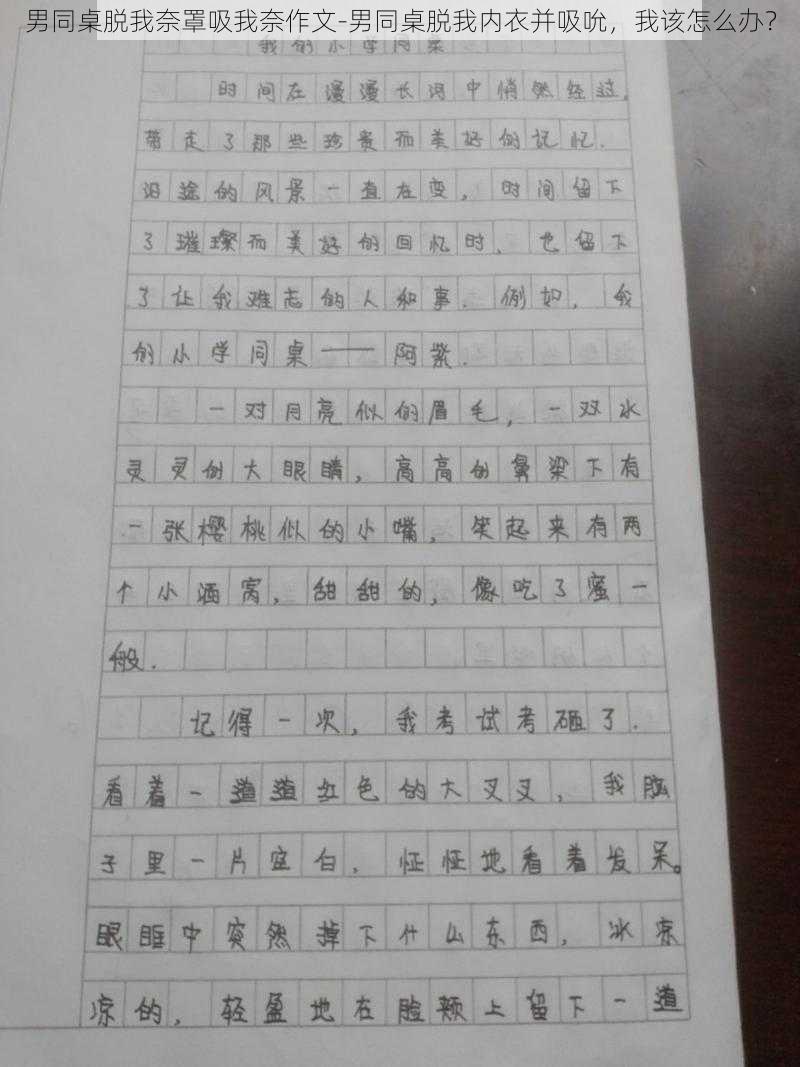 我的小学同桌
时间在漫漫长河中悄然经过，
带走了那些珍贵而美好的记忆．
沿途的风景一直在变，时间留下
了璀璨而美好的回忆时，也留下
了让我难志的人和事．例如，我
的小学同桌——阿紫．
一对月亮似的眉毛，一双水
灵灵的大眼睛，高高的鼻梁下有
一张樱桃似的小嘴，笑起来有两
个小酒窝，甜甜的，像吃了蜜一
般．
记得一次，我考试考砸了．
看着一道道红色的大叉叉，我脑
子里一片空白，怔怔地看着发呆。
眼睢中突然掉下什山东西，冰凉
凉的，轻盈地在脸颊上留下一道